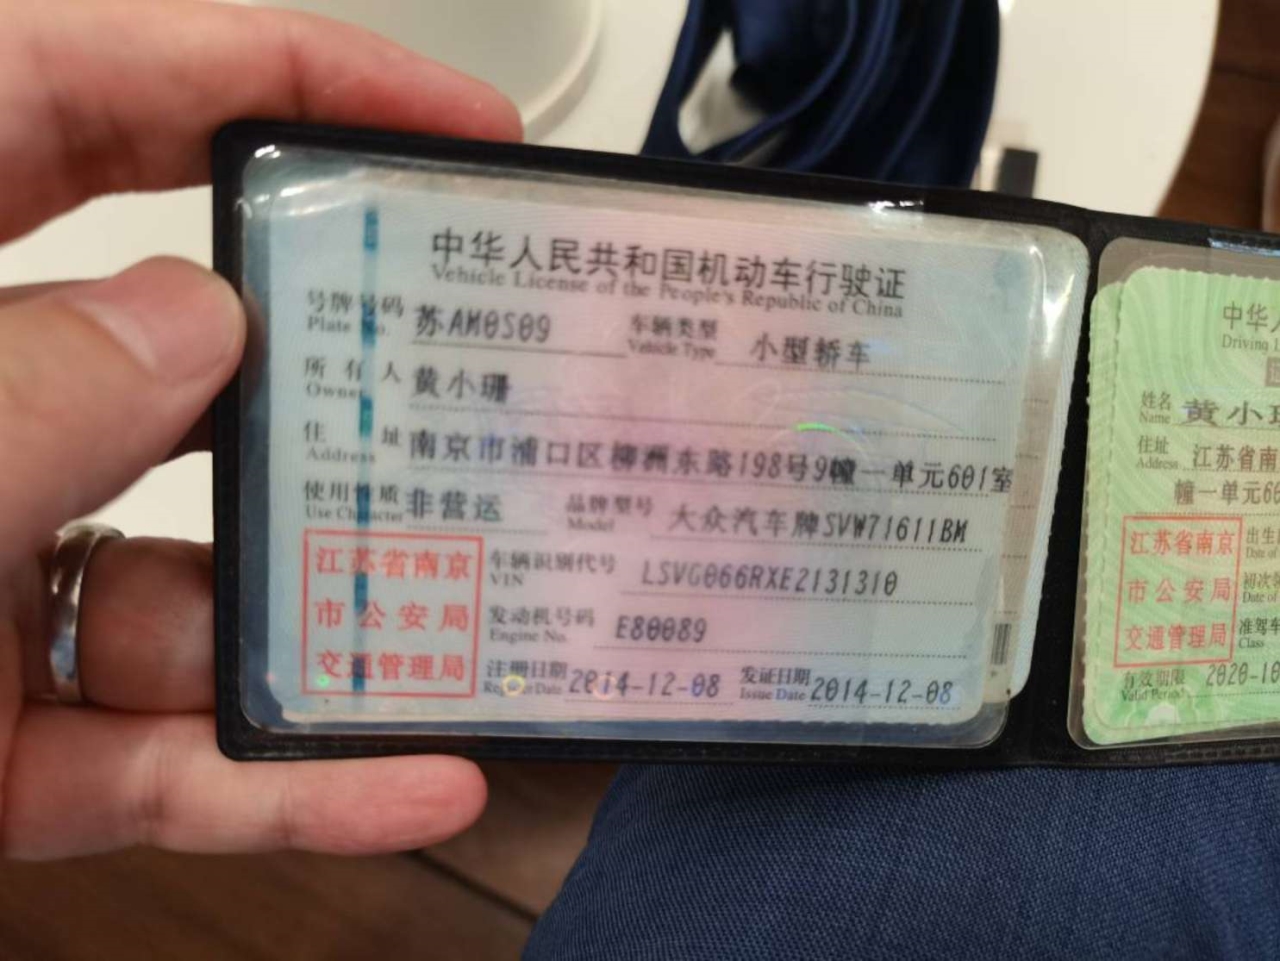 中华人民共和国机动车行驶证
Vehicle License of the People's Republic of China
号牌号码 苏AM0S09 车辆类型 小型轿车
Plate No. Vehicle Type
所有人 黄小珊
Owner
住址 南京市浦口区柳洲东路198号9幢一单元601室
Address
使用性质 非营运 品牌型号 大众汽车牌SVW71611BM
Use Character Model
江苏省南京
市公安局
交通管理局
车辆识别代号 LSVG066RXE2131310
VIN
发动机号码 E80089
Engine No.
注册日期 2014-12-08 发证日期 2014-12-08
Register Date Issue Date
中华
Driving
姓名 黄小
Name
住址 江苏省南
Address
幢一单元
江苏省南京
市公安局
交通管理局
出生
Date of
初次
Date of
准驾车
Class
有效期限 2020-10
Valid Period